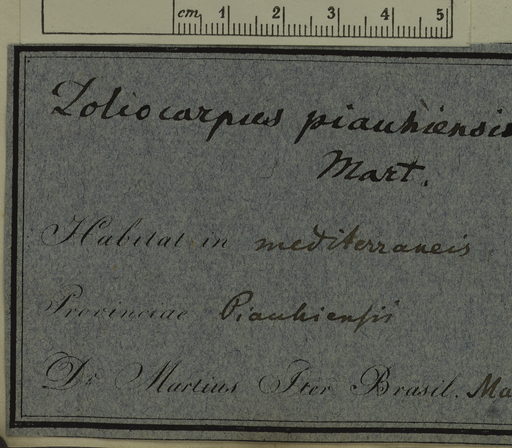 cm 1 2 3 4 5
Doliocarpus piauhiensis
Mart.
Habitat in mediterraneis
Provinciae Piauhiensis
Dr Martius Iter Brasil. Ma